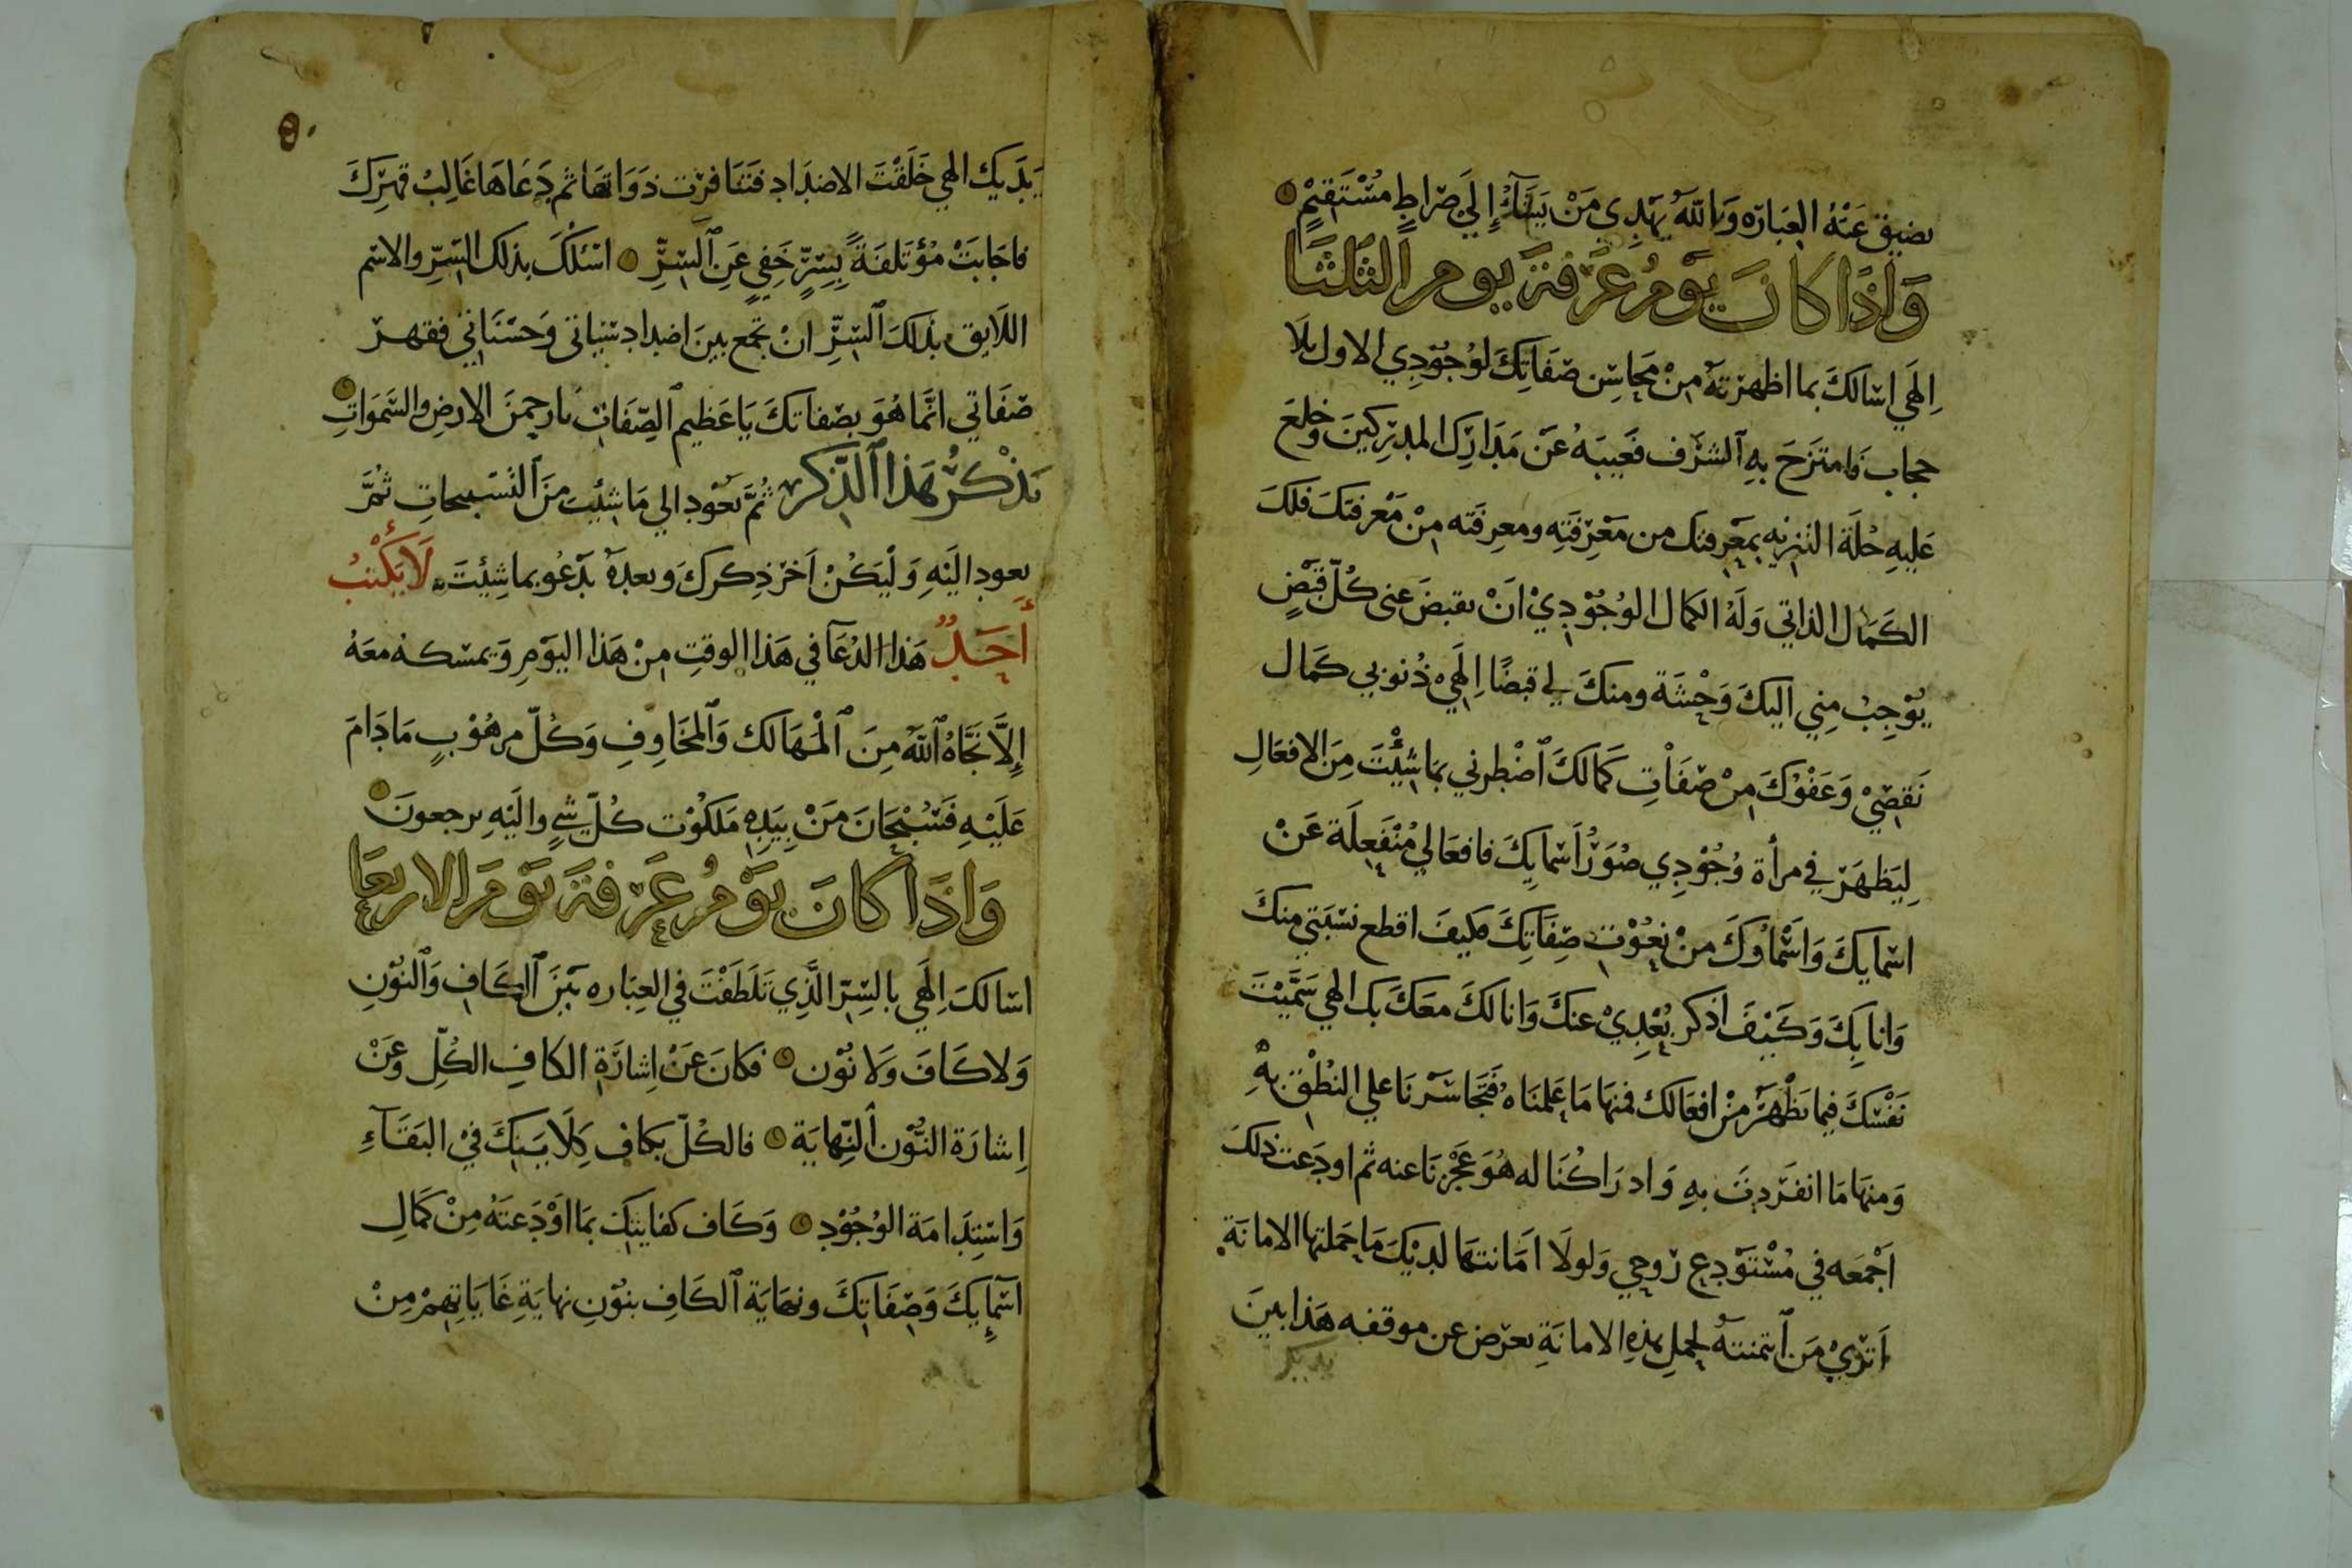 يضيق عَنْهُ العِبَارَه وَاللَّهُ يَهْدِي مَنْ يَشَآءُ إِلَي صِرَاطٍ مُسْتَقِيمٍ
وَاِذَا كَانَ يَوْمُ عَرَفَةَ يوم الثلثَا
اِلَهَي اسَالكَ بما اظهَرْتهُ مِنْ مَحَاسِن صَفَاتِكَ لوُجُوْدِي الاول بلَا
حجاب فَامتزَجَ بهِ الشرَف فغَيبَهُ عَنْ مَدَارِك المدْرِكينَ وخلعَ
عَليهِ حُلَة التنزيه بمَعْرِفتك من مَعْرِفَتِه ومعرِفَته مِنْ مَعْرفتكَ فلكَ
الكَمَال الذاتي وَلَهُ الكمال الوُجُوْدِيْ انْ تقبضَ عني كُلّ قبْضٍ
يُوْجِبْ مِنِي اليكَ وَحْشَة ومنكَ لي قبضًا اِلَهِيْ ذُنوُبي كَمَال
نَقصِيْ وَعَفْوُكَ مِنْ صَفَاْتِ كَمَالكَ اضْطرني بمَا شِئْتَ مِنَ الافعَالِ
لِيَظهَرَ في مرأة وُجُوْدِي صُوَرُ اَسْمايِكَ فافعَالي مُنْفَعِلَة عَنْ
اسمَايكَ وَاَسْمَاوُكَ مِنْ نعُوْتِ صِفَاتِكَ فكيفَ اقطع نسْبَتي منكَ
وَانا بِكَ وَكَيْفَ اذكر بُعْدِيْ عنكَ وَانا لكَ معَكَ بك الهي سَمَّيْتَ
نَفْسَكَ فيما تظْهَر مِنْ افعَالك فمنهَا مَا عَلمنَاهُ فَتجَاسَرْنَا علي النُطْق بهِ
وَمنهَا مَا انفَرَدتَ بهِ وَادرَاكنَا له هُوَ عَجْزنَا عنه ثم اودَعت ذلكَ
اَجْمَعه في مُسْتَوْدع رُوحي وَلولَا اَمَانتهَا لديْكَ مَا حَملتها الامانَة
اَتَرَيْ مَن اَئتمنتهُ لحملِ هذِه الامانَةِ تعرَض عن موقفه هَذا بينَ
يديك
يَدَيك الهي خَلَقْتَ الاضدَاد فتنافَرَت ذوَاتهَا ثم دَعَاهَا غَالِبُ قهرِكَ
فاجَابَتْ مُؤْتَلفَةً بِسِرٍّ خَفِي عَنِ السِّرِّ اسْئلُكَ بذلك السِّرِ والاسْم
اللَايق بذلكَ السِّرِّ انْ تجمَع بينَ اضداد سَيئاتي وَحسَنَاتي فقهرُ
صَفَاتي انَّمَا هُوَ بصفاتكَ يَا عَظيم الصِّفَات يارحمنَ الارضِ والسَّموَاتِ
تذْكُرُ بهَذا الذِّكر ثُمَّ تعُوْد الي مَا شِئت مِنَ التَسْبيحاتِ ثُمَّ
تعود اليْهِ وَلْيَكُنْ اَخرَ ذِكرك وبعدهُ تَدْعُو بما شِئتَ لَا يَكْتُبُ
أَحَدٌ هَذا الدُعَآ في هَذا الوقتِ مِنْ هَذا اليَوْمِ وَيمسَكه مَعَهُ
إِلَّا نَجَّاهُ اللَّهُ مِنَ الْمَهَالك وَالمخَاوِفِ وَكُلّ مرهُوْبٍ مَا دَامَ
عَلَيْهِ فَسُبْحَانَ مَنْ بِيَدِهِ مَلكُوْت كُلِّ شيٍ واليْهِ ترجعونَ
وَاِذَا كَانَ يَوْمُ عَرَفَةَ يَوْمَ الاربعَا
اسَالكَ اِلَهَي بالسِّرّ الَّذِي تَلَطَفْتَ في العِبَاره بَيْنَ الكَافِ وَالنُوْنِ
وَلا كَافَ وَلَا نُوْن فكانَ عَنْ اِشارَةِ الكافِ الكُلّ وَعَنْ
اِشارَة النُّوْن النِّهايَة فالكُلّ بكاف كِلَايتكَ فيْ البَقَآءِ
وَاسْتِدَامَة الوُجُوْدِ وَكَاف كفايتك بمَا اوْدَعتَهُ مِنْ كَمَالِ
اَسْمَايِكَ وَصفَاتِكَ ونهايَة الكَافِ بنُوْنِ نهايَةِ غَايَاتِهِمْ مِنْ